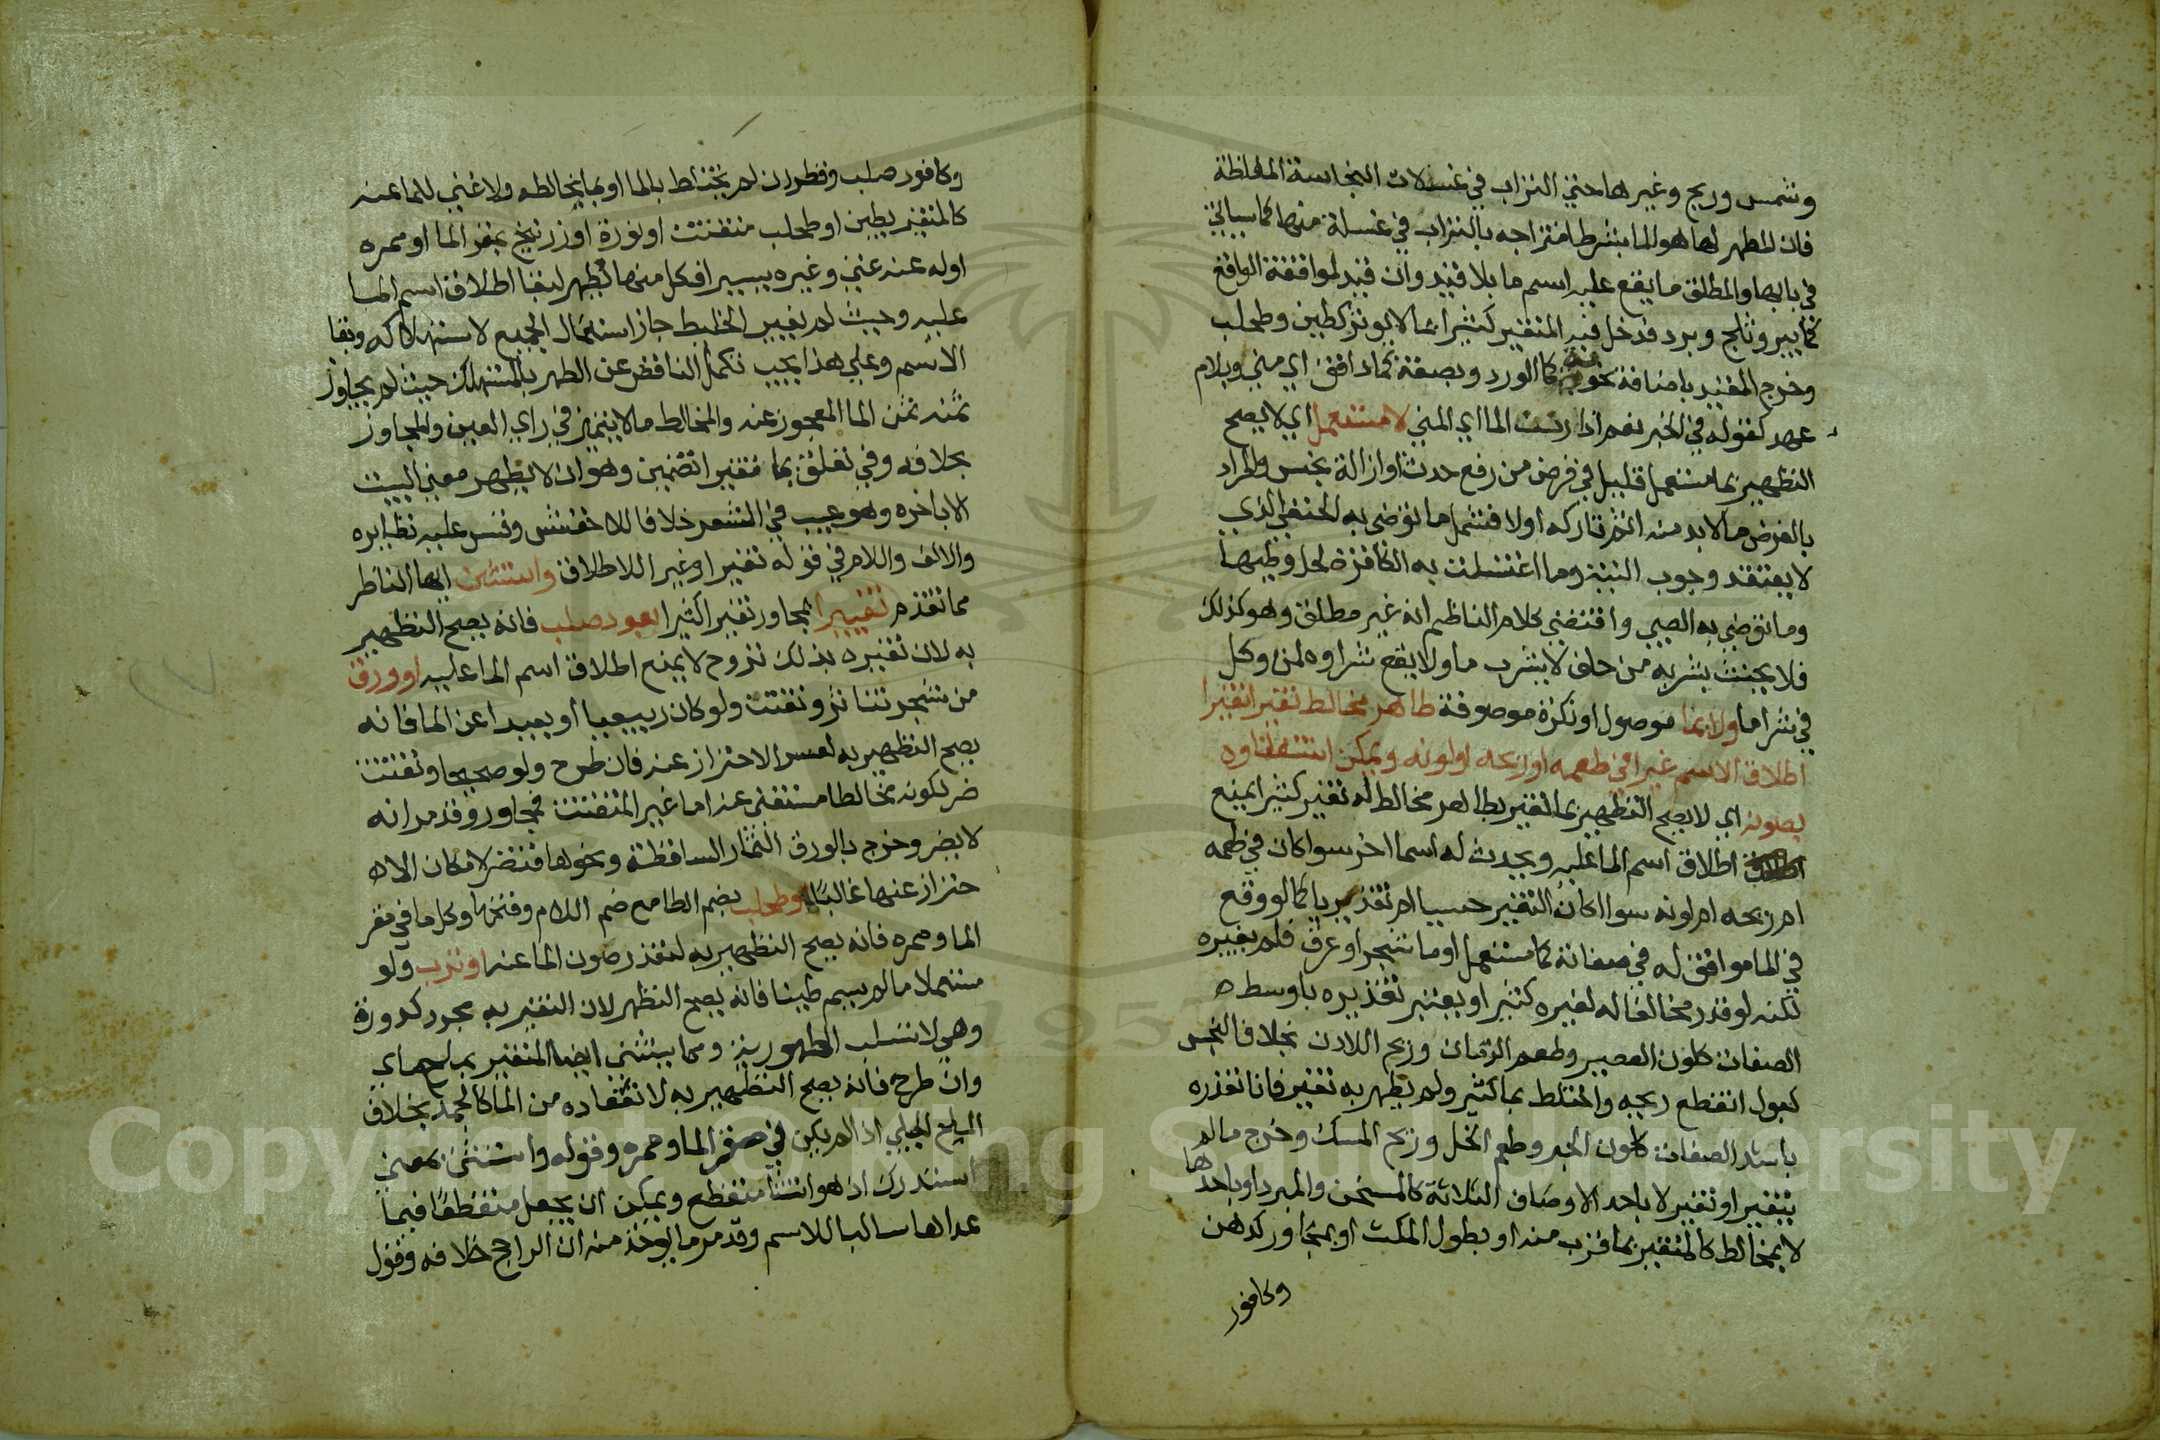 وشمس وريح وغيرها حتي التراب في غسلات النجاسة المغلظة
فان المطهر لها هو الما بشرط امتزاجه بالتراب في غسلة منها كما سياتي
في بابها والمطلق ما يقع عليه اسم ما بلا قيد وان قيد لموافقة الواقع
كما بير وثلج وبرد فدخل فيه المتغير كثيرا بما لا يوثر كطين وطحلب
وخرج المقيد باضافة نحويه كما الورد وبصفة كما دافق اي مني وبلام
عهد كقوله في الخبر نعم اذا رات الما اي المني لا مستعمل اي لا يصح
التطهير بما مستعمل قليل في فرض من رفع حدث او ازالة نجس والمراد
بالفرض ما لا بد منه اثم تاركه اولا فشمل ما توضي به الحنفي الذي
لا يعتقد وجوب النية وما اغتسلت به الكافرة لحل وطيها
وما توضي به الصبي واقتضي كلام الناظم انه غير مطلق وهو كذلك
فلا يحنث بشربه من حلف لا يشرب ما ولا يقع شراوه لمن وكل
في شرا ما ولا بما موصول او نكرة موصوفة طاهر مخالط تغيرا تغيرا
اطلاق الاسم غيرا في طعمه او ريحه او لونه ويمكن استغناوه
بصونه اي لا يصح التطهير بما تغير بطاهر مخالط له تغير كثيرا يمنع
اطلاق اسم الما عليه ويحدث له اسما اخر سوا كان في طعمه
ام ريحه ام لونه سوا اكان التغير حسيا ام تقديريا كما لو وقع
في الما موافق له في صفاته كما مستعمل او ما شجر او عرق فلم يغيره
لكنه لو قدر مخالفا له لغيره كثيرا ويعتبر تقديره باوسط
الصفات كلون العصير وطعم الرمان وريح اللادن بخلاف النجس
كبول انقطع ريحه واختلط بما كثير ولم يظهر به تغير فانا نقدره
باشد الصفات كلون الحبر وطعم الخل وريح المسك وخرج ما لم
يتغير او تغير لا باحد الاوصاف الثلاثة كالمسخن والمبرد او باحدها
لا بمخالط كالمتغير بما قرب منه او بطول المكث او بمجاور كدهن
وكافور
وكافور صلب وقطران لم يختلط بالما او بما يخالطه ولا غني للما عنه
كالمتغير بطين او طحلب متفتت او نورة او زرنيخ بمقر الما او ممره
اوله عنه غني وغيره يسيرا فكل منها يطهر لبقا اطلاق اسم الما
عليه وحيث لم يغير الخليط جاز استعمال الجميع لاستهلاكه وبقا
الاسم وعلي هذا يجب تكميل الناقص عن الطهر بالمستهلك حيث لم يجاوز
ثمنه ثمن الما المعجوز عنه والمخالط ما لا يتميز في راي العين والمجاور
بخلافه وفي تعلق بما تغيرا تضمين وهو ان لا يظهر معني البيت
الا باخره وهو عيب في الشعر خلافا للاخفش وقس عليه نظايره
والالف واللام في قوله تغيرا وغيرا للاطلاق واستثن ايها الناظر
مما تقدم تغييرا بمجاور تغير اكثيرا بعود صلب فانه يصح التطهير
به لان تغيره بذلك تروح لا يمنع اطلاق اسم الما عليه او ورق
من شجر تناثر وتفتت ولو كان ربيعيا او بعيدا عن الما فانه
يصح التطهير به لعسر الاحتراز عنه فان طرح ولو صحيحا وتفتت
ضر لكونه مخالطا مستغني عنه اما غير المتفتت فمجاور وقد مر انه
لا يضر وخرج بالورق الثمار الساقطة ونحوها فتضر لامكان الا
حتراز عنها غالبا او طحلب بضم الطا مع ضم اللام وفتحها وكل ما في مقر
الما وممره فانه يصح التطهير به لتعذر صون الما عنه او ترب ولو
مستعملا ما لم يسم طينا فانه يصح التطهر لان التغير به مجرد كدورة
وهي لا تسلب الطهورية ومما يستثني ايضا المتغير بملح ماي
وان طرح فانه يصح التطهير به لانعقاده من الما كالجمد بخلاف
الملح الجبلي اذا لم يكن في مقر الما وممره وقوله واستثن بمعني
استدرك اذ هو استثنا منقطع ويمكن ان يجعل منقطعا فيما
عداها سالبا للاسم وقد مر ما يوخذ منه ان الراجح خلافه وقول